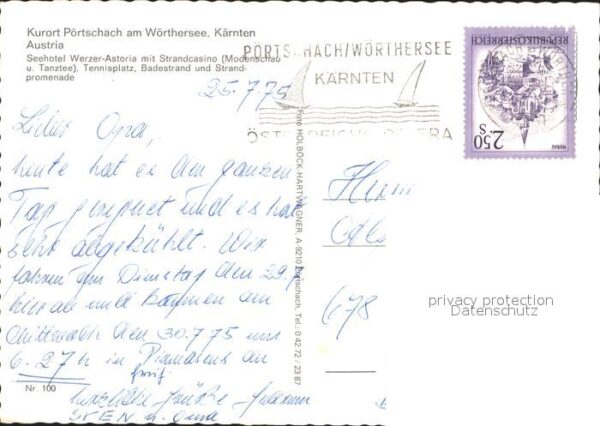 Kurort Pörtschach am Wörthersee, Kärnten
Austria
Seehotel Werzer-Astoria mit Strandcasino (Modenschau
u. Tanztee), Tennisplatz, Badestrand und Strand-
promenade
25.7.75
Lieber Opa,
heute hat es den ganzen
Tag geregnet und es hat
sehr abgekühlt. Wir
fahren am Dienstag den 29.7
hier ab und kommen am
Mittwoch den 30.7.75 um
6.27 h in Pirmasens an
früh
herzliche Grüße
u. Oma
Nr. 100
Foto HOLBÖCK-HARTWAGNER, A-9210 Pörtschach, Tel.: 0 42 72 / 23 87
PÖRTSCHACH/WÖRTHERSEE
KÄRNTEN
ÖSTERREICHS RIVIERA
REPUBLIK ÖSTERREICH
2.50
S
MURAU
Herrn
678
privacy protection
Datenschutz